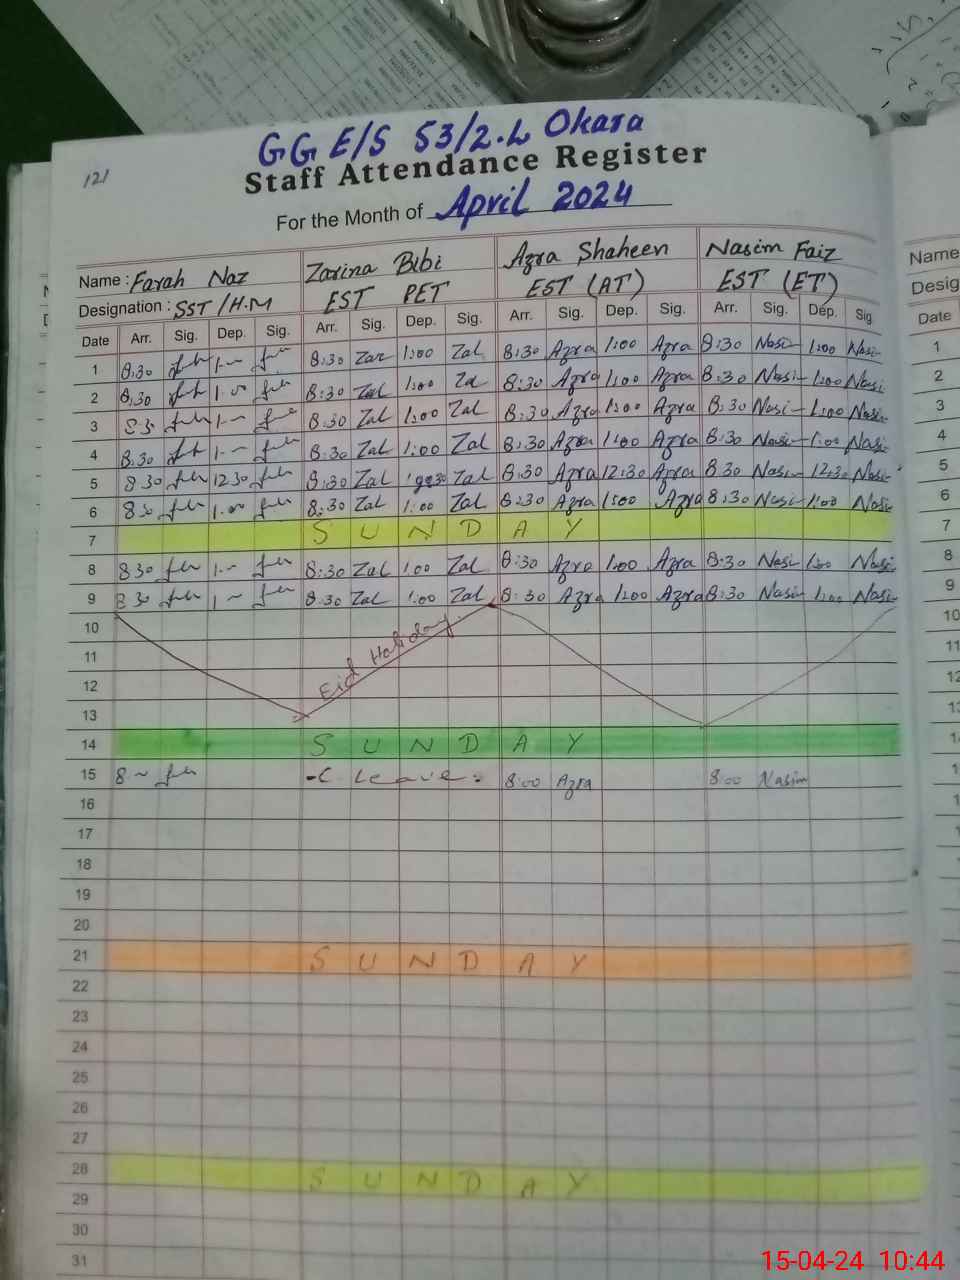 121
GG E/S 53/2.L Okara
Staff Attendance Register
For the Month of April 2024
Name : Farah Naz Zarina Bibi Azra Shaheen Nasim Faiz
Designation : SST / H.M EST PET EST (AT) EST (ET)
Date Arr. Sig. Dep. Sig. Arr. Sig. Dep. Sig. Arr. Sig. Dep. Sig. Arr. Sig. Dep. Sig.
1 8:30 8:30 Zal 1:00 Zal 8:30 Azra 1:00 Azra 8:30 Nasi 1:00 Nasi
2 8:30 1:00 8:30 Zal 1:00 Zal 8:30 Azra 1:00 Azra 8:30 Nasi 1:00 Nasi
3 8:30 8:30 Zal 1:00 Zal 8:30 Azra 1:00 Azra 8:30 Nasi 1:00 Nasi
4 8:30 8:30 Zal 1:00 Zal 8:30 Azra 1:00 Azra 8:30 Nasi 1:00 Nasi
5 8 30 12 30 8:30 Zal Zal 8:30 Azra 12:30 Azra 8 30 Nasi 12:30 Nasi
6 8 30 1:00 8:30 Zal 1:00 Zal 8:30 Azra 1:00 Azra 8:30 Nasi 1:00 Nasi
7 S U N D A Y
8 8 30 8:30 Zal 1:00 Zal 8:30 Azra 1:00 Azra 8:30 Nasi 1:00 Nasi
9 8 30 8:30 Zal 1:00 Zal 8:30 Azra 1:00 Azra 8:30 Nasim 1:00 Nasi
10
11 Eid Holiday
12
13
14 S U N D A Y
15 8 -C Leave- 8:00 Azra 8:00 Nasim
16
17
18
19
20
21 S U N D A Y
22
23
24
25
26
27
28 S U N D A Y
29
30
31
Name
Desig
Date
1
2
3
4
5
6
7
8
9
10
11
12
13
15-04-24 10:44